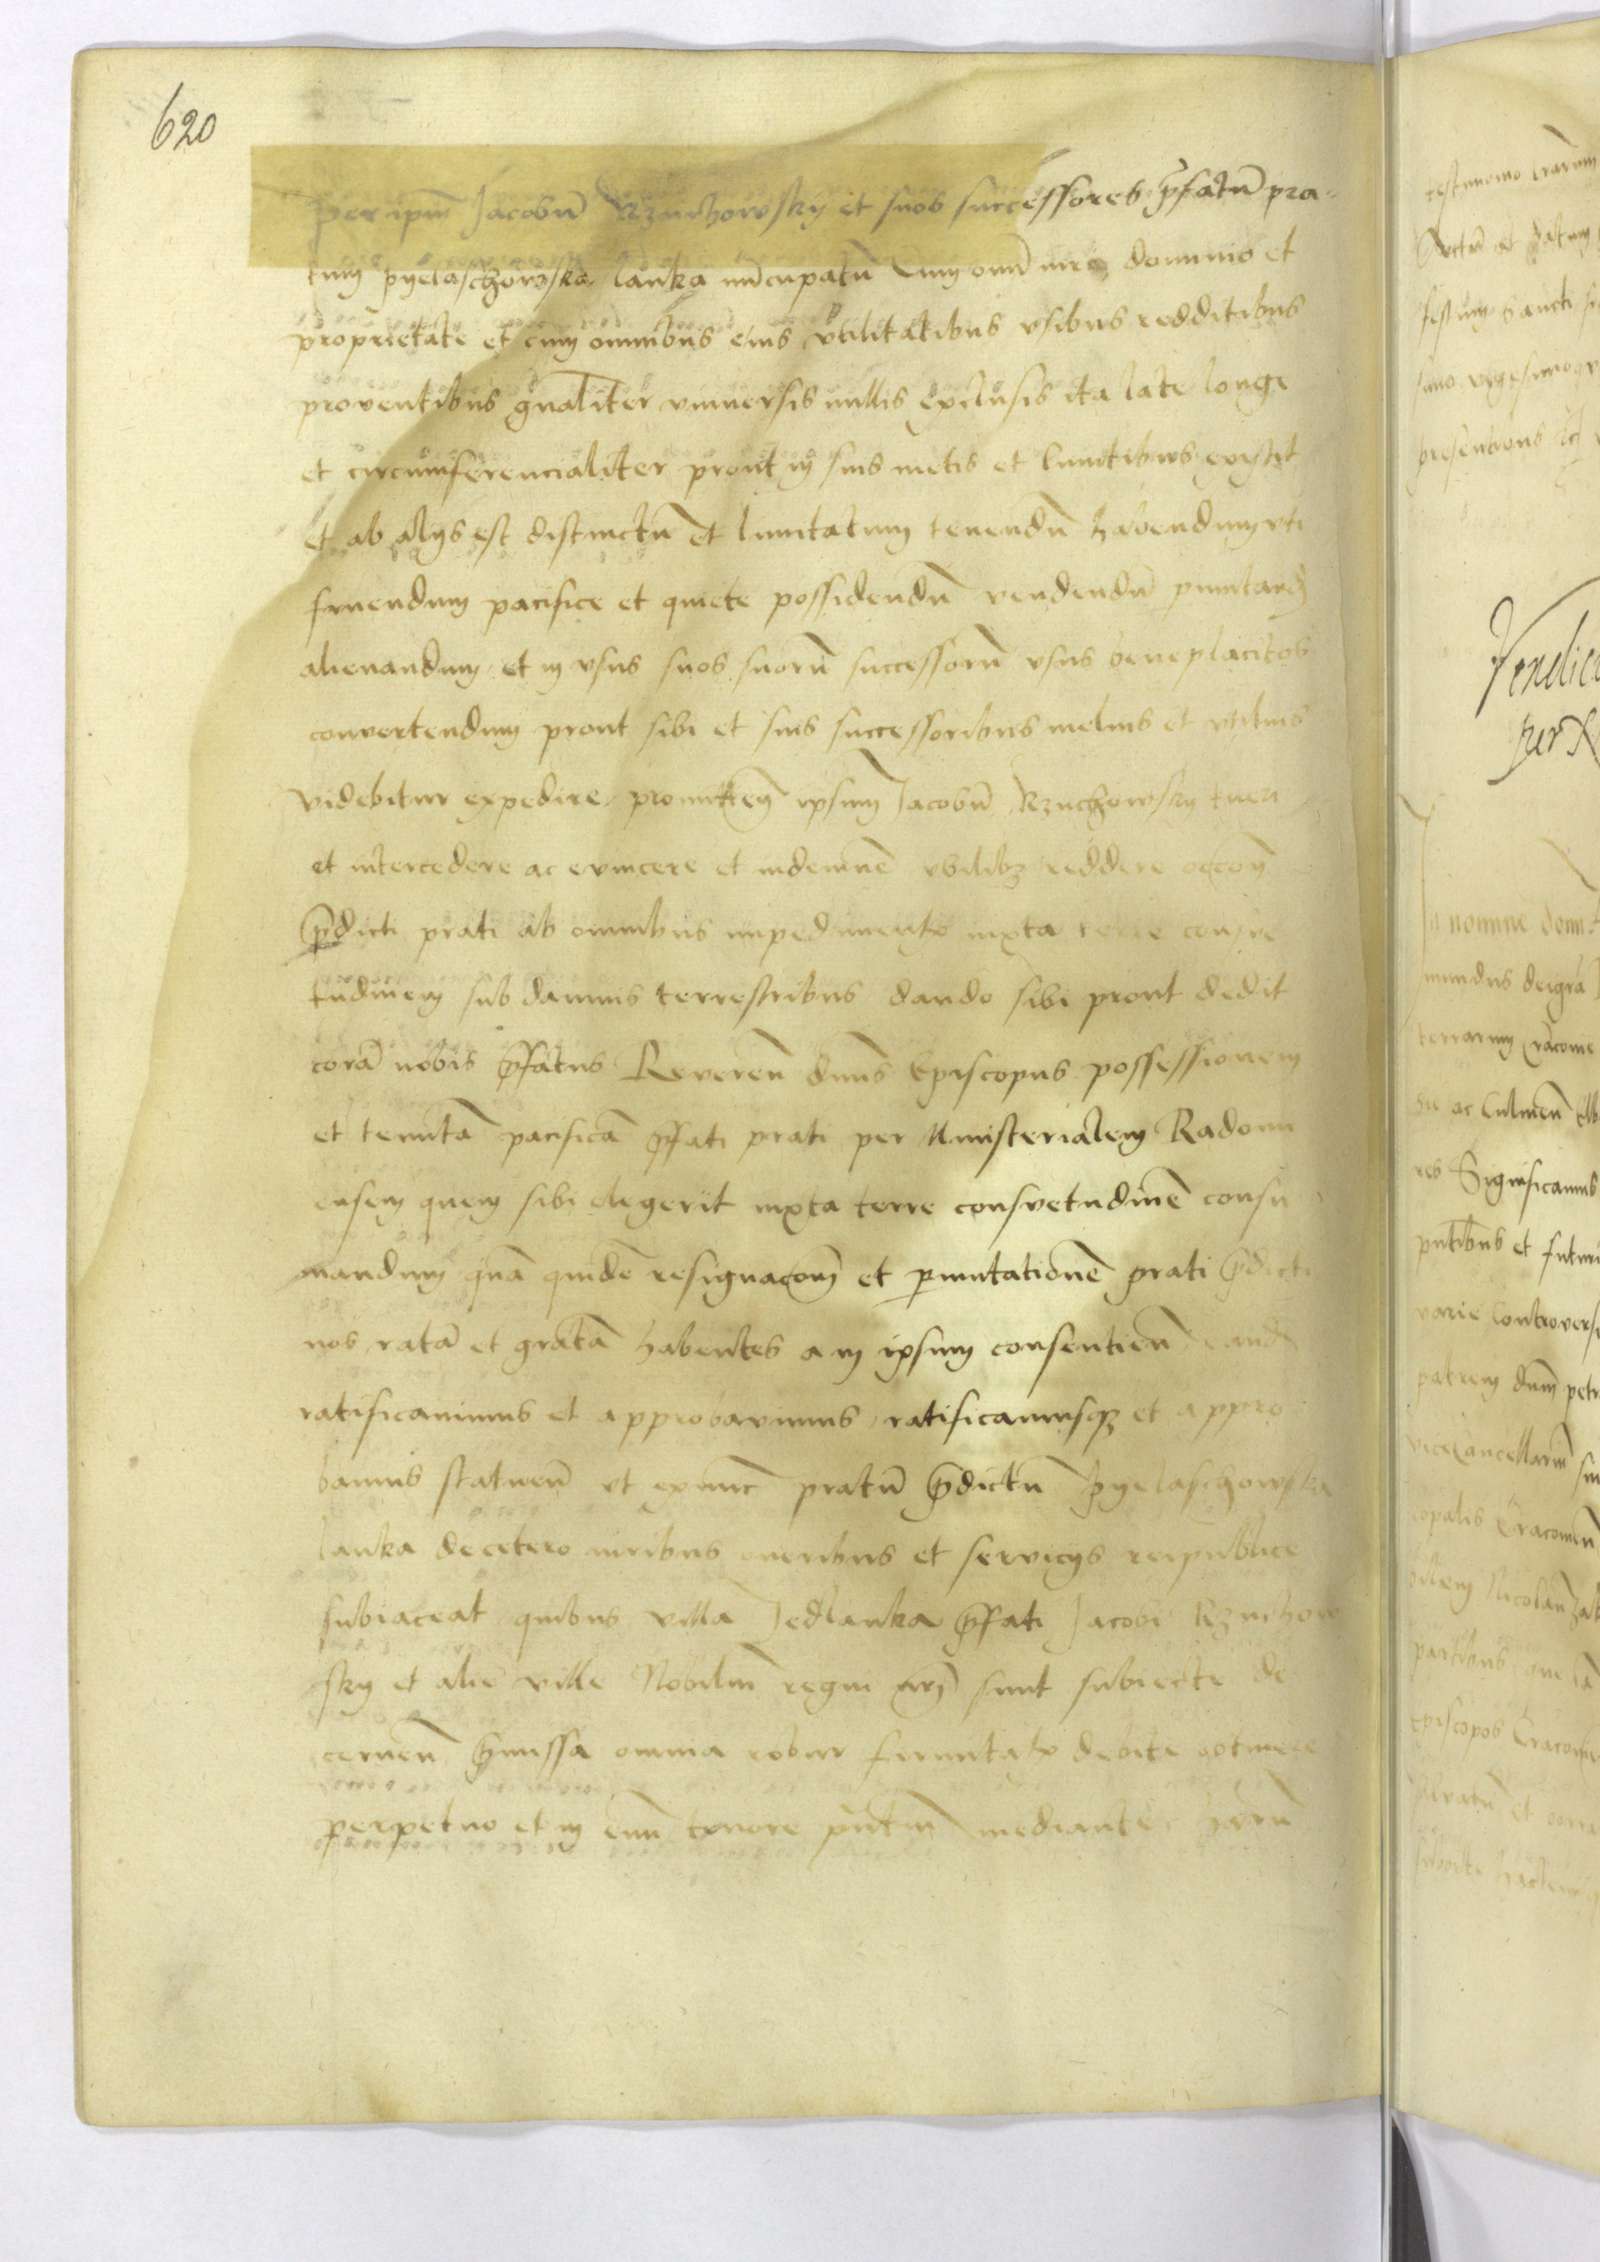 620
per ipm̄ Jacobū Rzuchowsky et suos successores p̄fatū pra-
tum pyelaschowska lanka nūcupatū Cum omī iure dominio et
proprietate et cum omnibus eius vtilitatibus vsibus redditibus
proventibus gn̄aliter vniuersis nullis exclusis ita late longe
et circumferencialiter prout in suis metis et limitibus existit
et ab alijs est distinctū et limitatum tenendū habendum vti
fruendum pacifice et quiete possidendū vendendū pmutand
alienandum et in vsus suos suorū successorū vsus beneplacitos
convertendum prout sibi et suis successoribus melius et vtilius
videbitur expedire promitten̄ ipsum Jacobū Rzuchowsky tueri
et intercedere ac evincere et indemnē vbilibz reddere occōn̄
p̄dicti prati ab omnibus impedimentis iuxta terre consue
tudinem sub damnis terrestribus dando sibi prout dedit
corā nobis p̄fatus Reveren̄ dn̄s Episcopus possessionem
et tenutā pacificā p̄fati prati per Ministerialem Radomi
ensem quem sibi elegerit iuxta terre consvetudinē consu
mandum quā quidē resignacōm̄ et pmutationē prati p̄dicti
nos ratā et gratā habentes a in ipsum consentien̄ eand
ratificavimus et approbavimus ratificamusqz et appro
bamus statuen̄ vt exnunc pratū p̄dictū Pyelaschowska
lanka decetero iuribus oneribus et servicijs reipublice
subiaceat quibus villa Jedlanka p̄fati Jacobi Rzuchow
sky et alie ville Nobiliū regni nr̄i sunt subiecte de
cernen̄ p̄missa omnia robur firmitatis debite obtinere
perpetuo et in evū tenore pn̄tiū mediante harū
testimonio lrārum
Actū et datum
festum sancti
simo vigesimo
presentibus
Vendic
per
In nomine domi
mundus dei gra
terrarum Cracovie
sie ac Culmen̄ Elb
res Significamus
pn̄tibus et futuri
varie Controversi
patrem dn̄m petr
viceCancellariū
copalis Cracovien̄
bilem Nicolaū
partibus
Episcopos Cracovien